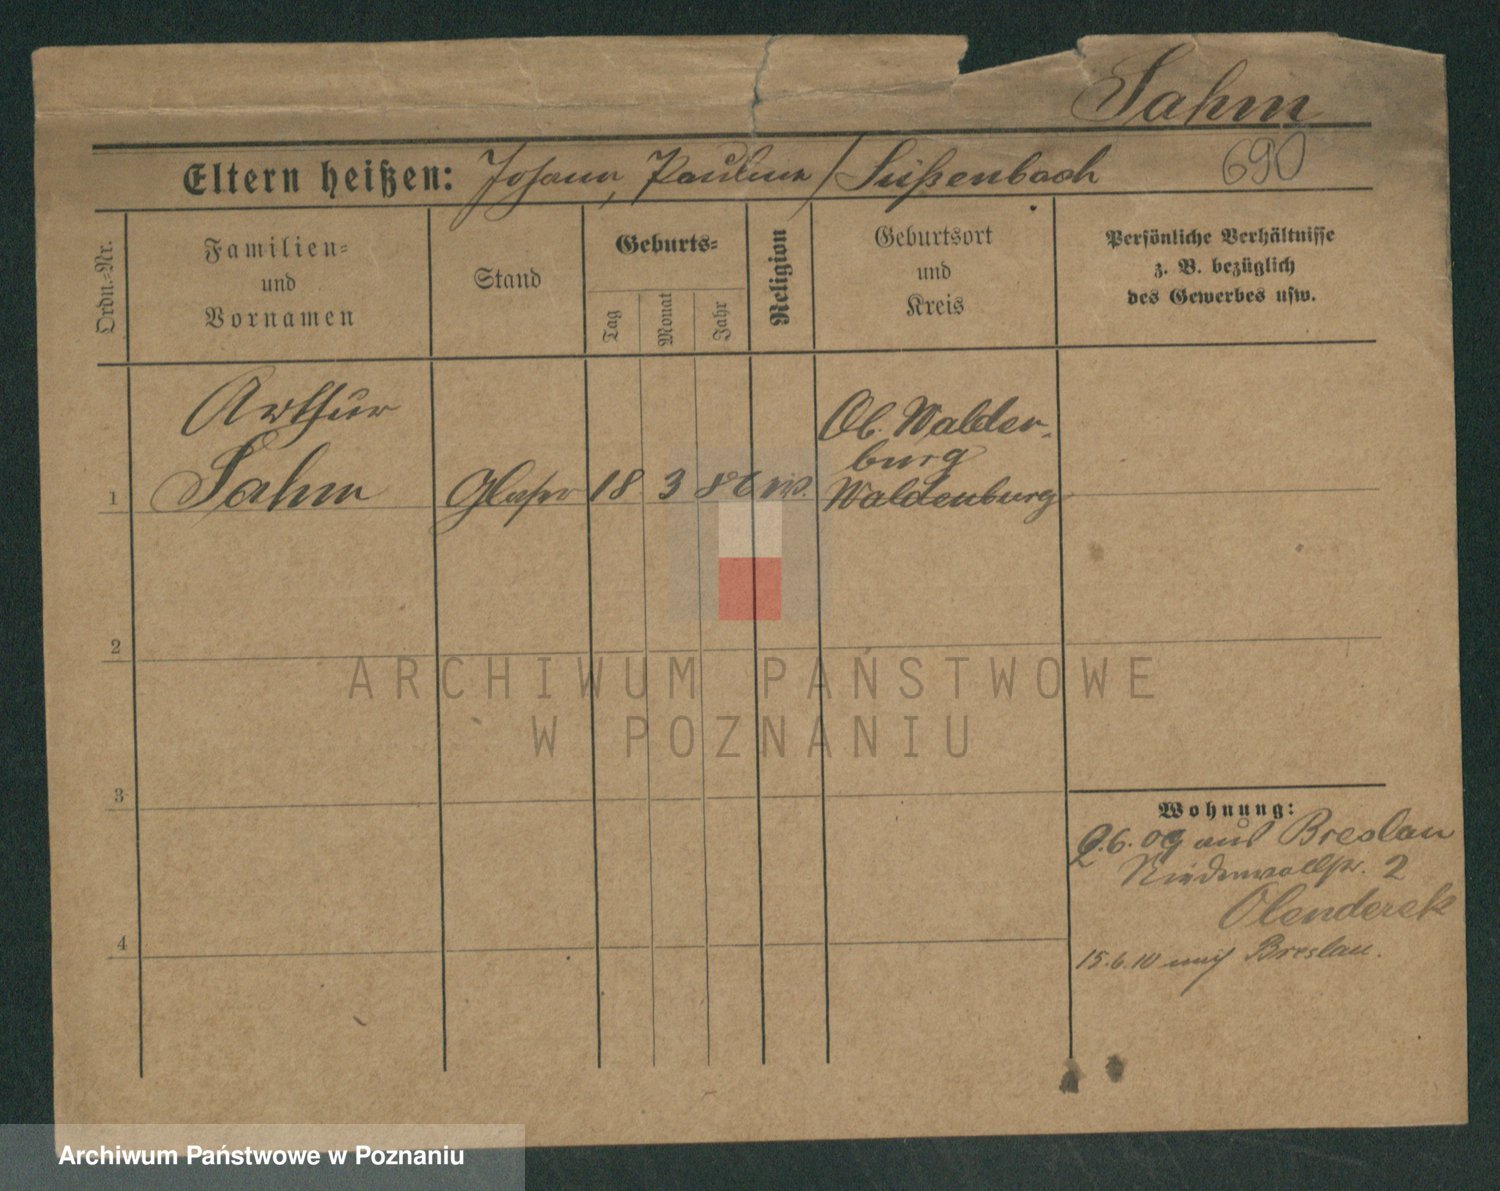 Sahm
Eltern heißen: Johann, Pauline / Süßenbach
690
Ordn.-Nr.
Familien-
und
Vornamen
Stand
Geburts-
Tag
Monat
Jahr
Religion
Geburtsort
und
Kreis
Persönliche Verhältnisse
z. B. bezüglich
des Gewerbes usw.
Arthur
Ob. Walden-
burg
1 Sahm Glaser 18 3 86 Waldenburg
2
3
4
Wohnung:
2.6.09 aus Breslau
2
Olenderek
15.6.10 nach Breslau.
ARCHIWUM PAŃSTWOWE
W POZNANIU
Archiwum Państwowe w Poznaniu